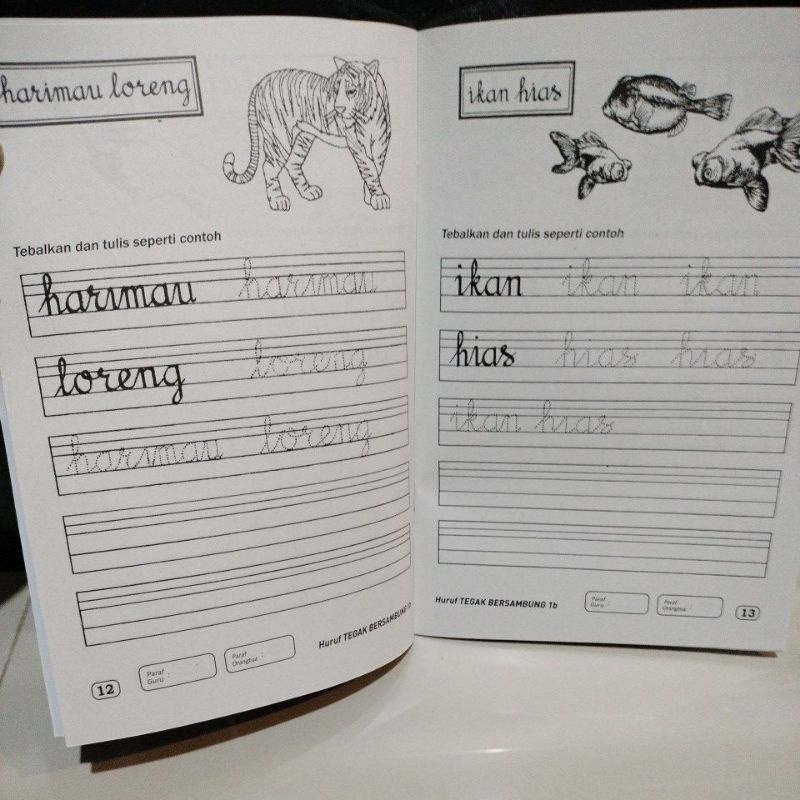 harimau loreng
Tebalkan dan tulis seperti contoh
harimau harimau
loreng loreng
harimau loreng
Huruf TEGAK BERSAMBUNG 1b
Paraf :
Guru
Paraf :
Orangtua
12
ikan hias
Tebalkan dan tulis seperti contoh
ikan ikan ikan
hias hias hias
ikan hias
Huruf TEGAK BERSAMBUNG 1b
Paraf :
Guru
Paraf :
Orangtua
13